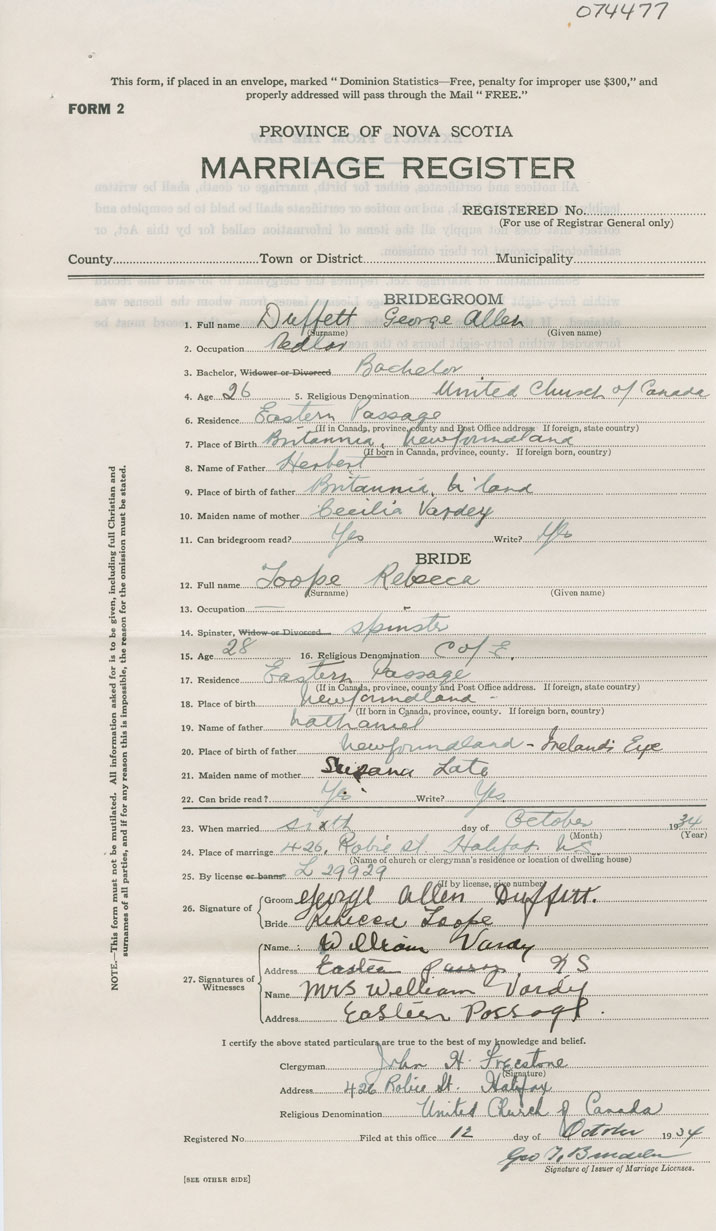 074477
This form, if placed in an envelope, marked "Dominion Statistics—Free, penalty for improper use $300," and
properly addressed will pass through the Mail "FREE."
FORM 2
PROVINCE OF NOVA SCOTIA
MARRIAGE REGISTER
REGISTERED No.
(For use of Registrar General only)
County Town or District Municipality
BRIDEGROOM
1. Full name Duffett George Allen
(Surname) (Given name)
2. Occupation Pedlar
3. Bachelor, Widower or Divorced Bachelor
4. Age 26 5. Religious Denomination United Church of Canada
6. Residence Eastern Passage
(If in Canada, province, county and Post Office address. If foreign, state country)
7. Place of Birth Britannia, Newfoundland
(If born in Canada, province, county. If foreign born, country)
8. Name of Father Herbert
9. Place of birth of father Britannia, N'land
10. Maiden name of mother Cecilia Vardey
11. Can bridegroom read? Yes Write? Yes
BRIDE
12. Full name Toope Rebeca
(Surname) (Given name)
13. Occupation —
14. Spinster, Widow or Divorced spinster
15. Age 28 16. Religious Denomination C of E.
17. Residence Eastern Passage
(If in Canada, province, county and Post Office address. If foreign, state country)
18. Place of birth Newfoundland
(If born in Canada, province, county. If foreign born, country)
19. Name of father Nathaniel
20. Place of birth of father Newfoundland - Irelands Eye
21. Maiden name of mother Late
22. Can bride read? Yes Write? Yes
23. When married sixth day of October 1934
(Month) (Year)
24. Place of marriage 426, Robie st Halifax N.S.
(Name of church or clergyman's residence or location of dwelling house)
25. By license or banns L 29929
(If by license, give number)
26. Signature of
Groom George Allen Duffett.
Bride Rebecca Toope
27. Signatures of Witnesses
Name William Vardy
Address Eastern N S
Name Mrs William Vardy
Address Eastern Passage.
I certify the above stated particulars are true to the best of my knowledge and belief.
Clergyman John H. Freestone
(Signature)
Address 426 Robie St. Halifax
Religious Denomination United Church of Canada
Registered No. Filed at this office 12 day of October 1934
Geo
Signature of Issuer of Marriage Licenses.
[SEE OTHER SIDE]
NOTE.—This form must not be mutilated. All information asked for is to be given, including full Christian and
surnames of all parties, and if for any reason this is impossible, the reason for the omission must be stated.